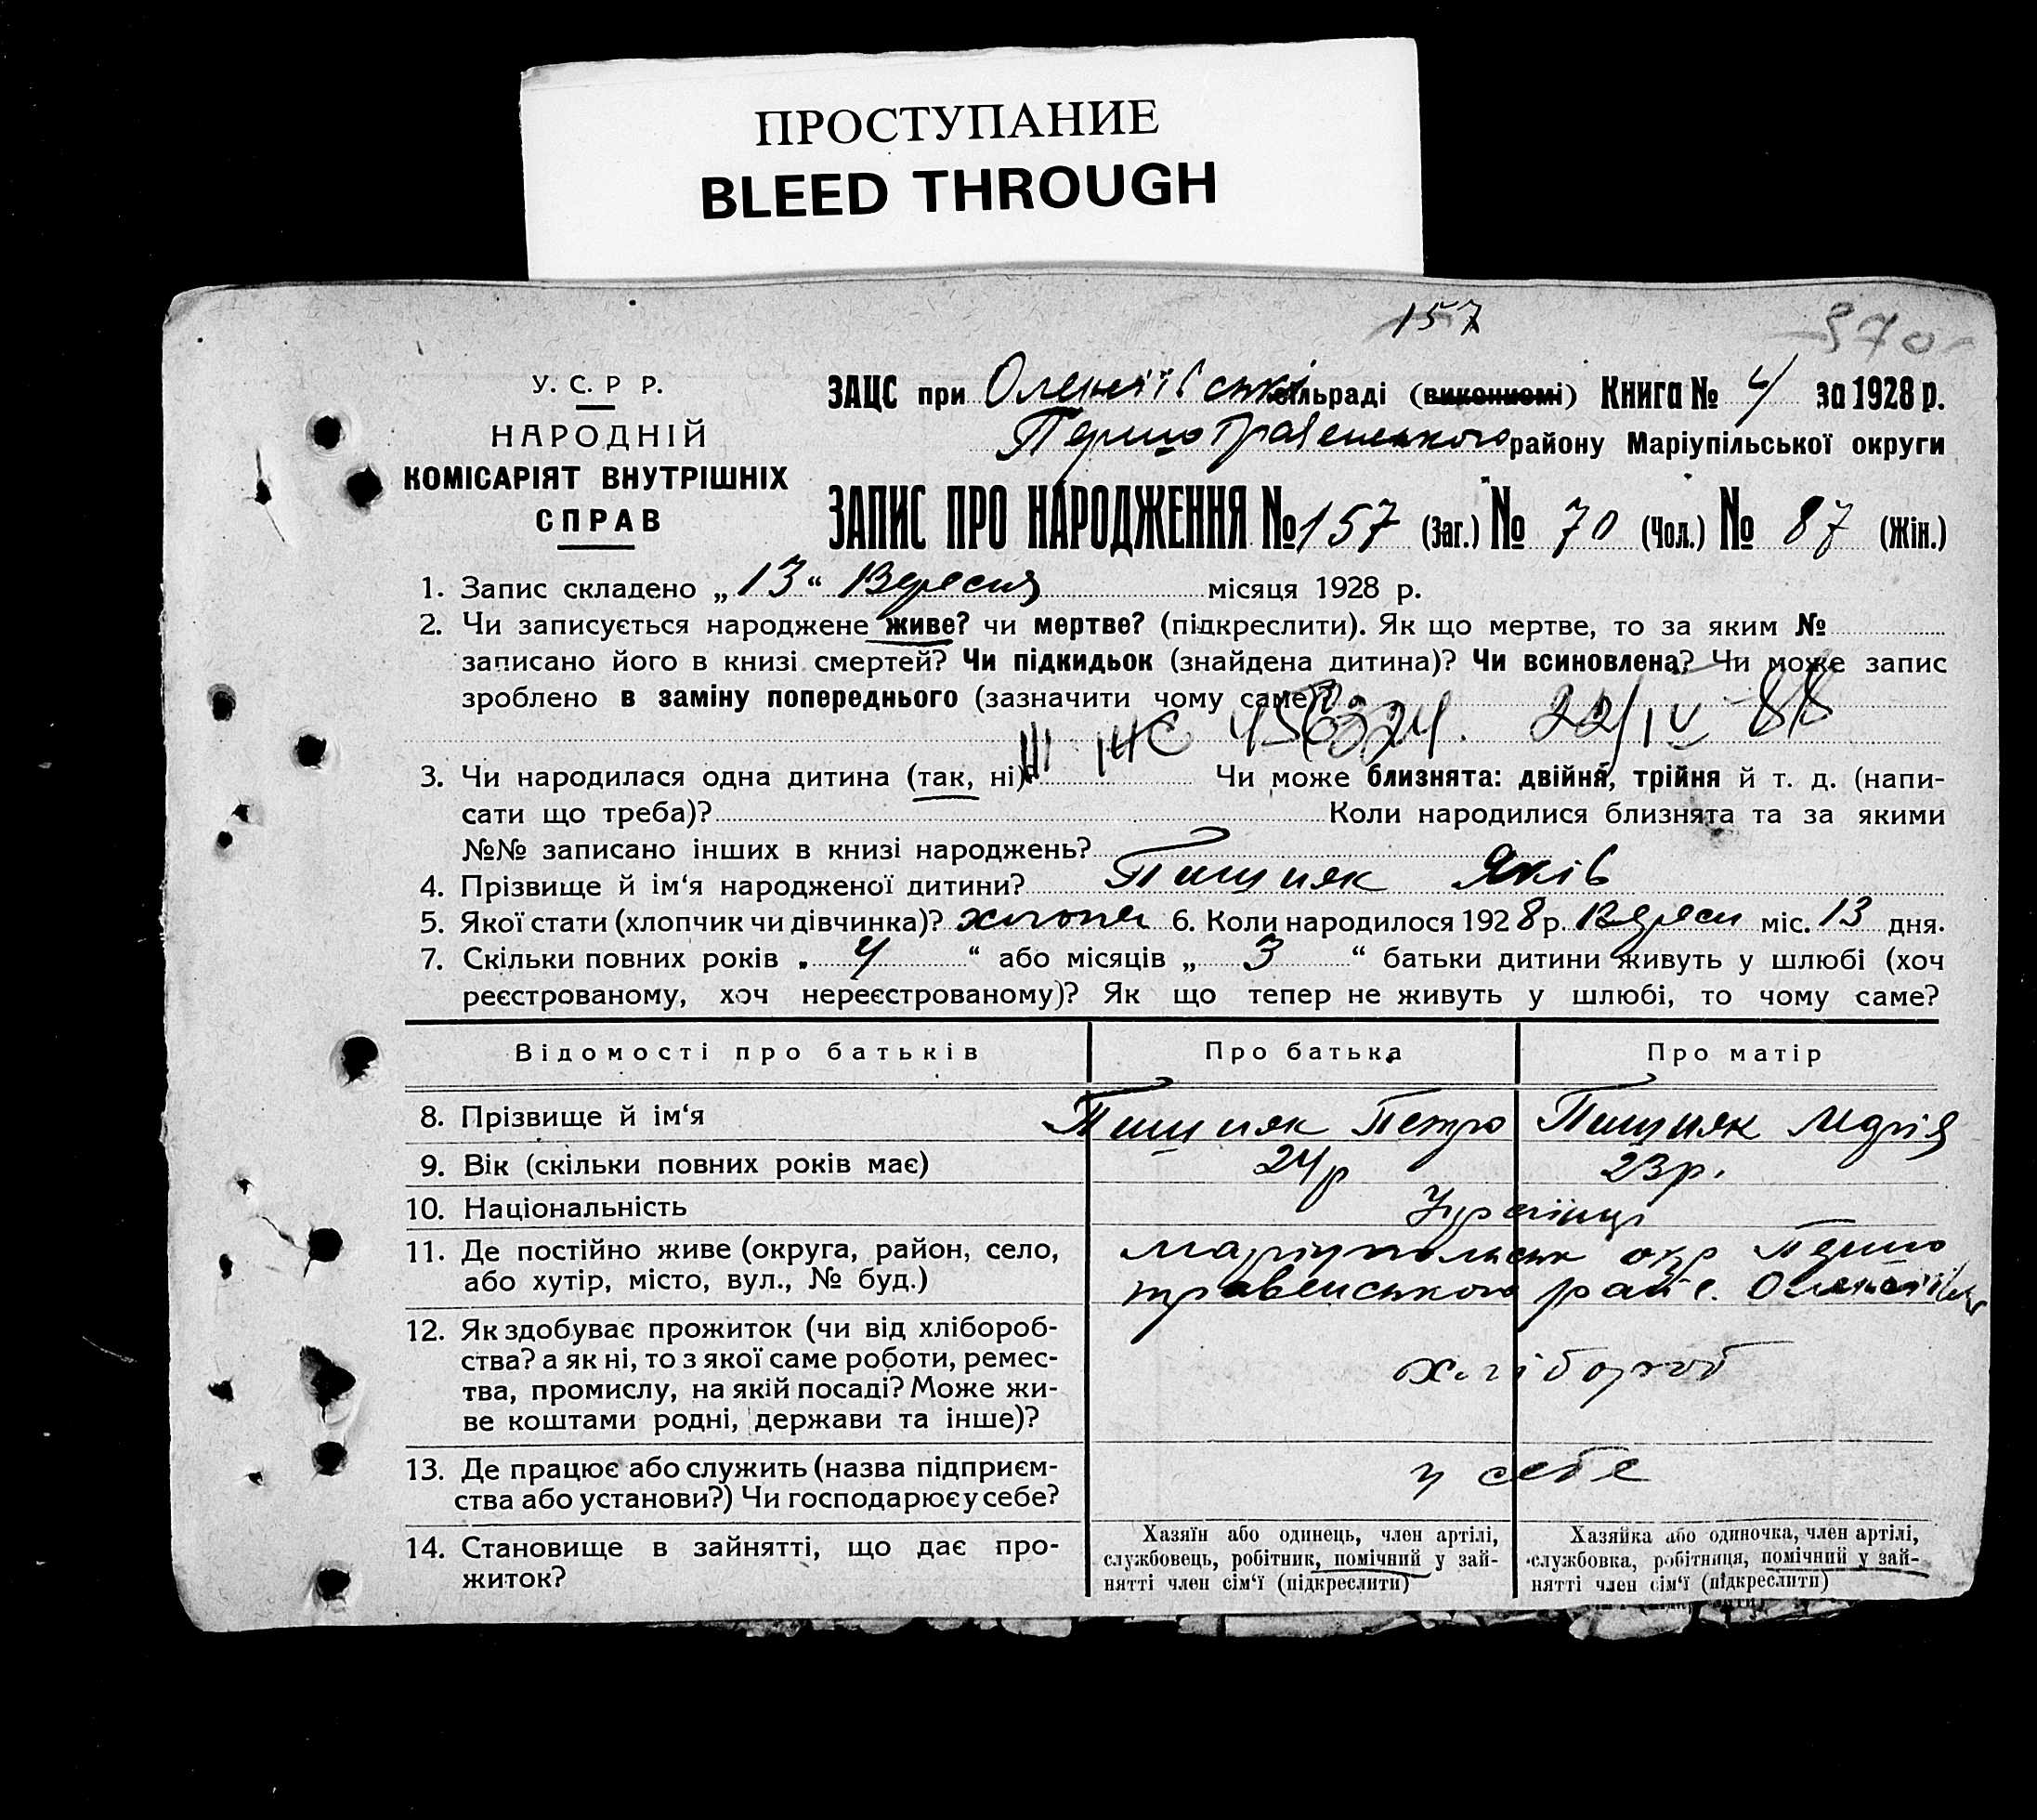 ПРОСТУПАНИЕ
BLEED THROUGH
157
370
У. С. Р Р.
НАРОДНІЙ
КОМІСАРІЯТ ВНУТРІШНІХ
СПРАВ
ЗАЦС при сільраді (виконкомі) Книга № 4 за 1928 р.
Першотравенського району Маріупільської округи
ЗАПИС ПРО НАРОДЖЕННЯ № 157 (Заг.) № 70 (Чол.) № 87 (Жін.)
1. Запис складено „13“ Вересня місяця 1928 р.
2. Чи записується народжене живе? чи мертве? (підкреслити). Як що мертве, то за яким №
записано його в книзі смертей? Чи підкидьок (знайдена дитина)? Чи всиновлена? Чи може запис
зроблено в заміну попереднього (зазначити чому саме)?
22/IV 88
3. Чи народилася одна дитина (так, ні)? Чи може близнята: двійня, трійня й т. д. (напи-
сати що треба)? Коли народилися близнята та за якими
№№ записано інших в книзі народжень?
4. Прізвище й ім‘я народженої дитини? Пишняк Яків
5. Якої стати (хлопчик чи дівчинка)? 6. Коли народилося 1928 р. Вересн міс. 13 дня.
7. Скільки повних років „ 4 “ або місяців „ 3 “ батьки дитини живуть у шлюбі (хоч
реєстрованому, хоч нереєстрованому)? Як що тепер не живуть у шлюбі, то чому саме?
Відомості про батьків Про батька Про матір
8. Прізвище й ім‘я Пишняк Петро Пишняк Марія
9. Вік (скільки повних років має) 24р 23р.
10. Національність Українці
11. Де постійно живе (округа, район, село, Маріупольськ окр Першо
або хутір, місто, вул., № буд.) травенського рай с.
12. Як здобуває прожиток (чи від хлібороб-
ства? а як ні, то з якої саме роботи, ремес- хлібороб
тва, промислу, на якій посаді? Може жи-
ве коштами родні, держави та інше)?
13. Де працює або служить (назва підприєм- у себе
ства або установи?) Чи господарює у себе?
14. Становище в зайнятті, що дає про-
житок?
Хазяїн або одинець, член артілі,
службовець, робітник, помічний у зай-
нятті член сім‘ї (підкреслити)
Хазяйка або одиночка, член артілі,
службовка, робітниця, помічний у зай-
нятті член сім‘ї (підкреслити)